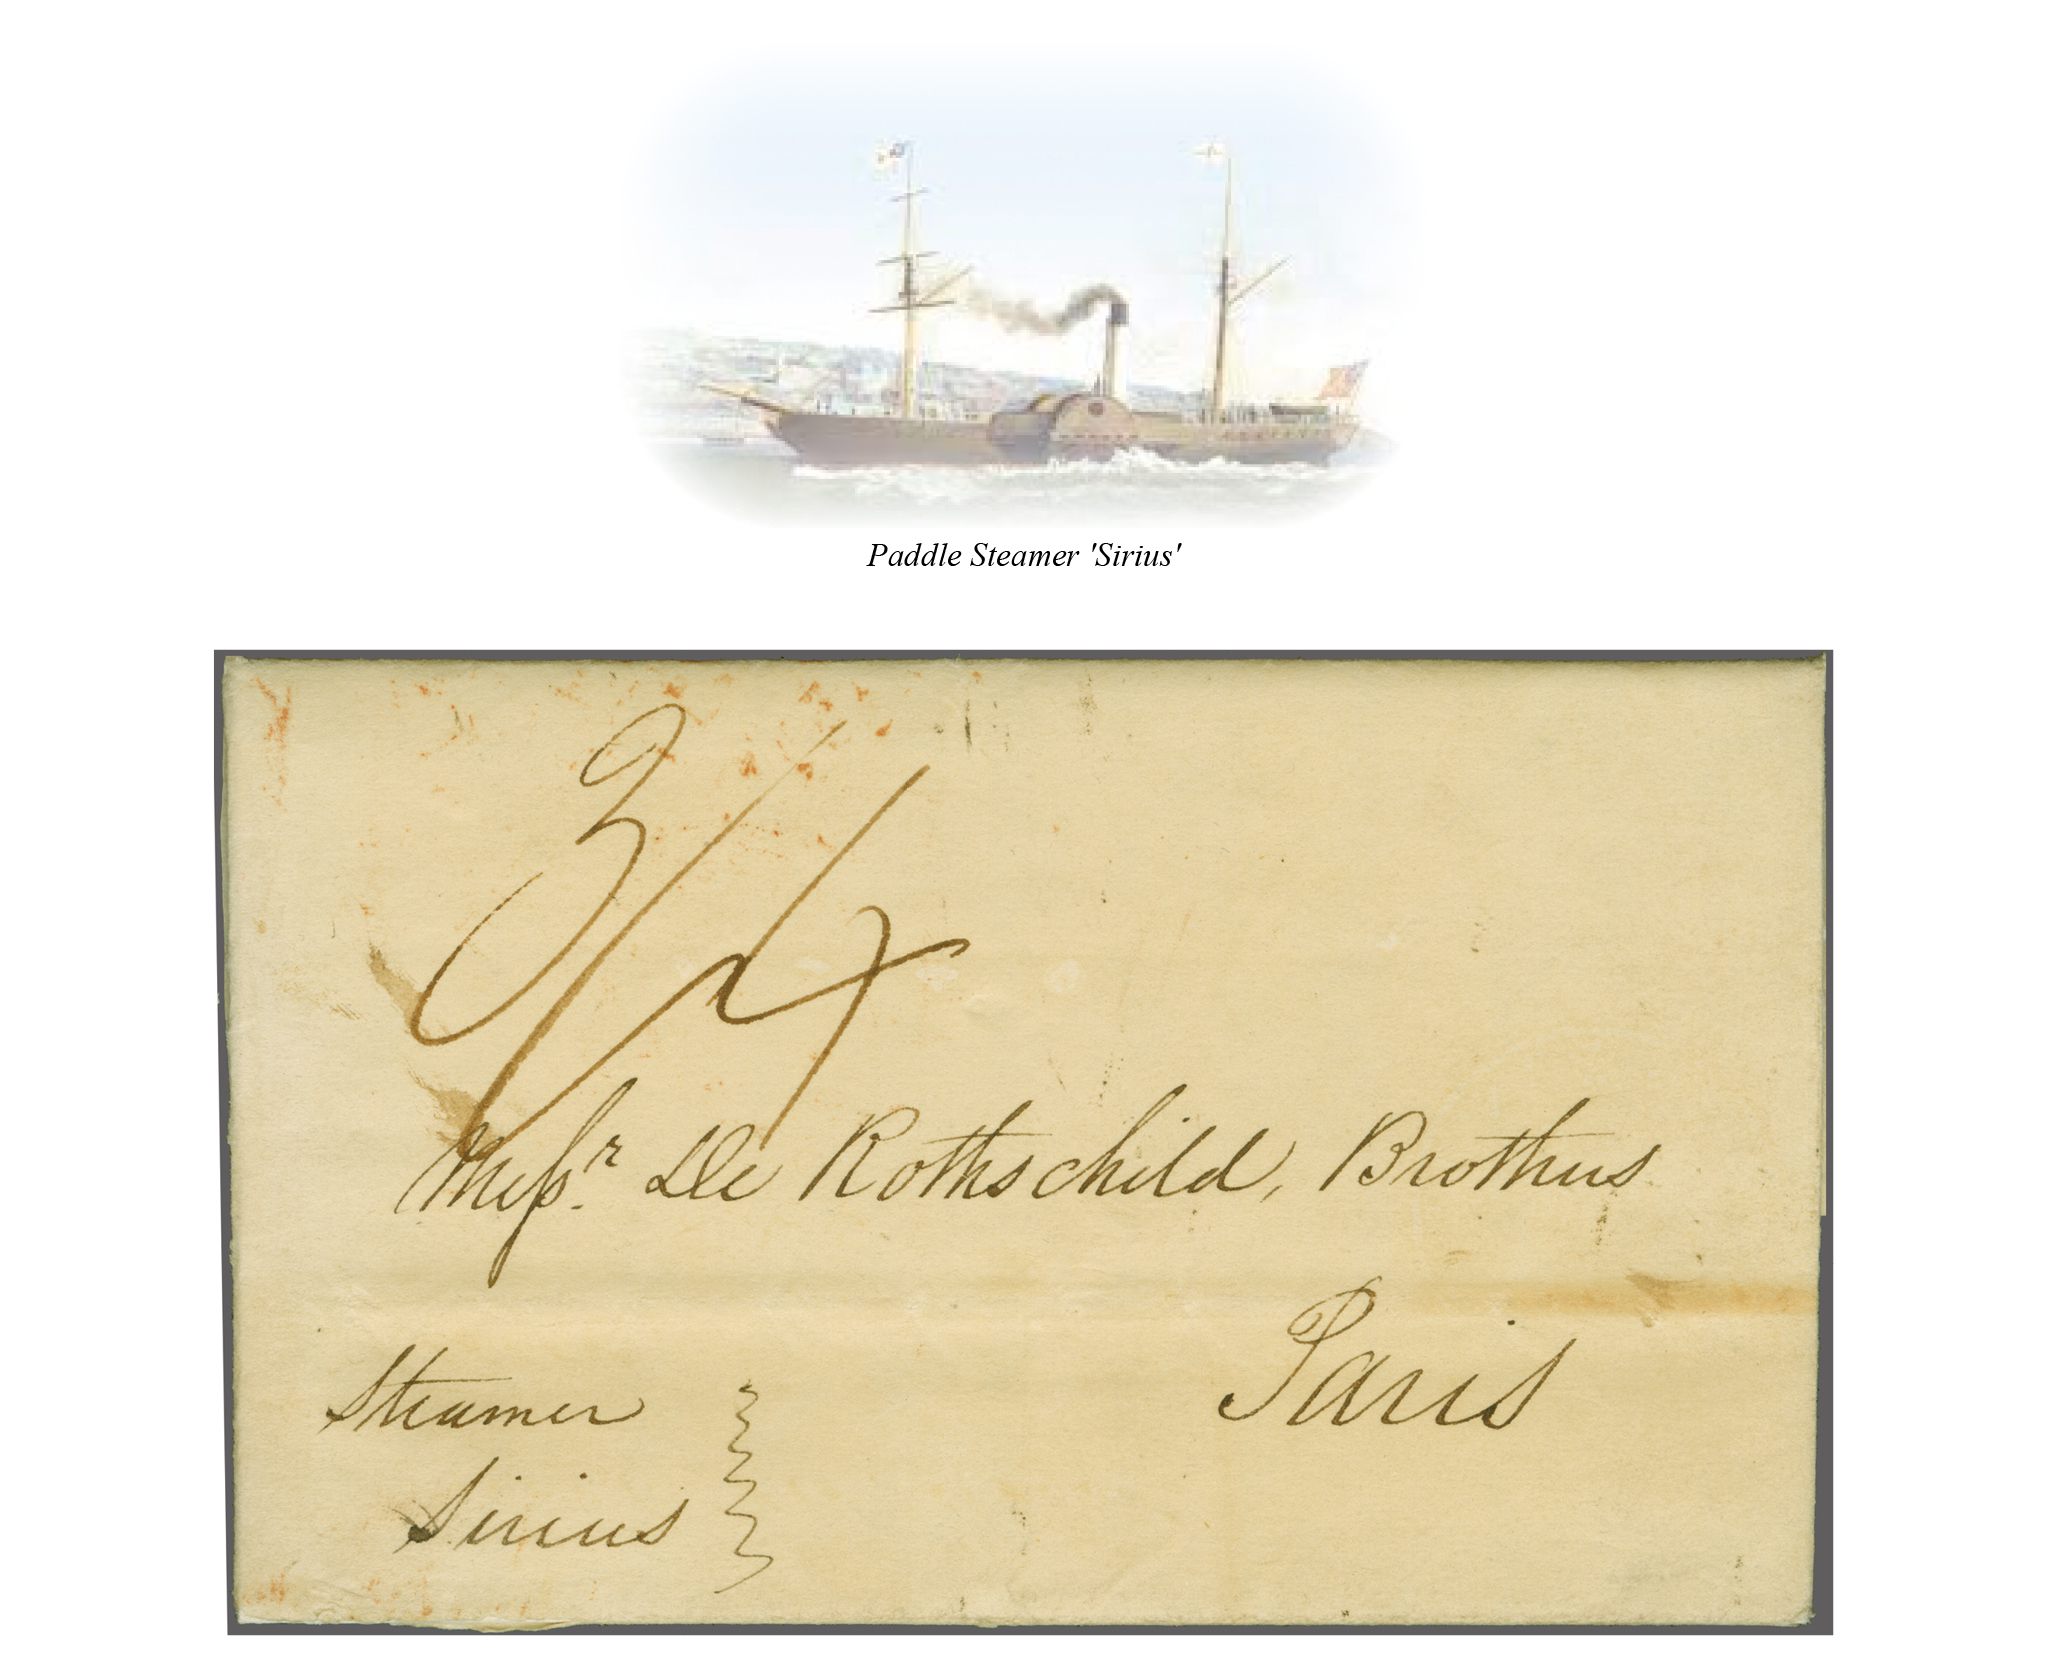 Paddle Steamer 'Sirius'
3/4
Messr. De Rothschild, Brothers
Paris
Steamer
Sirius